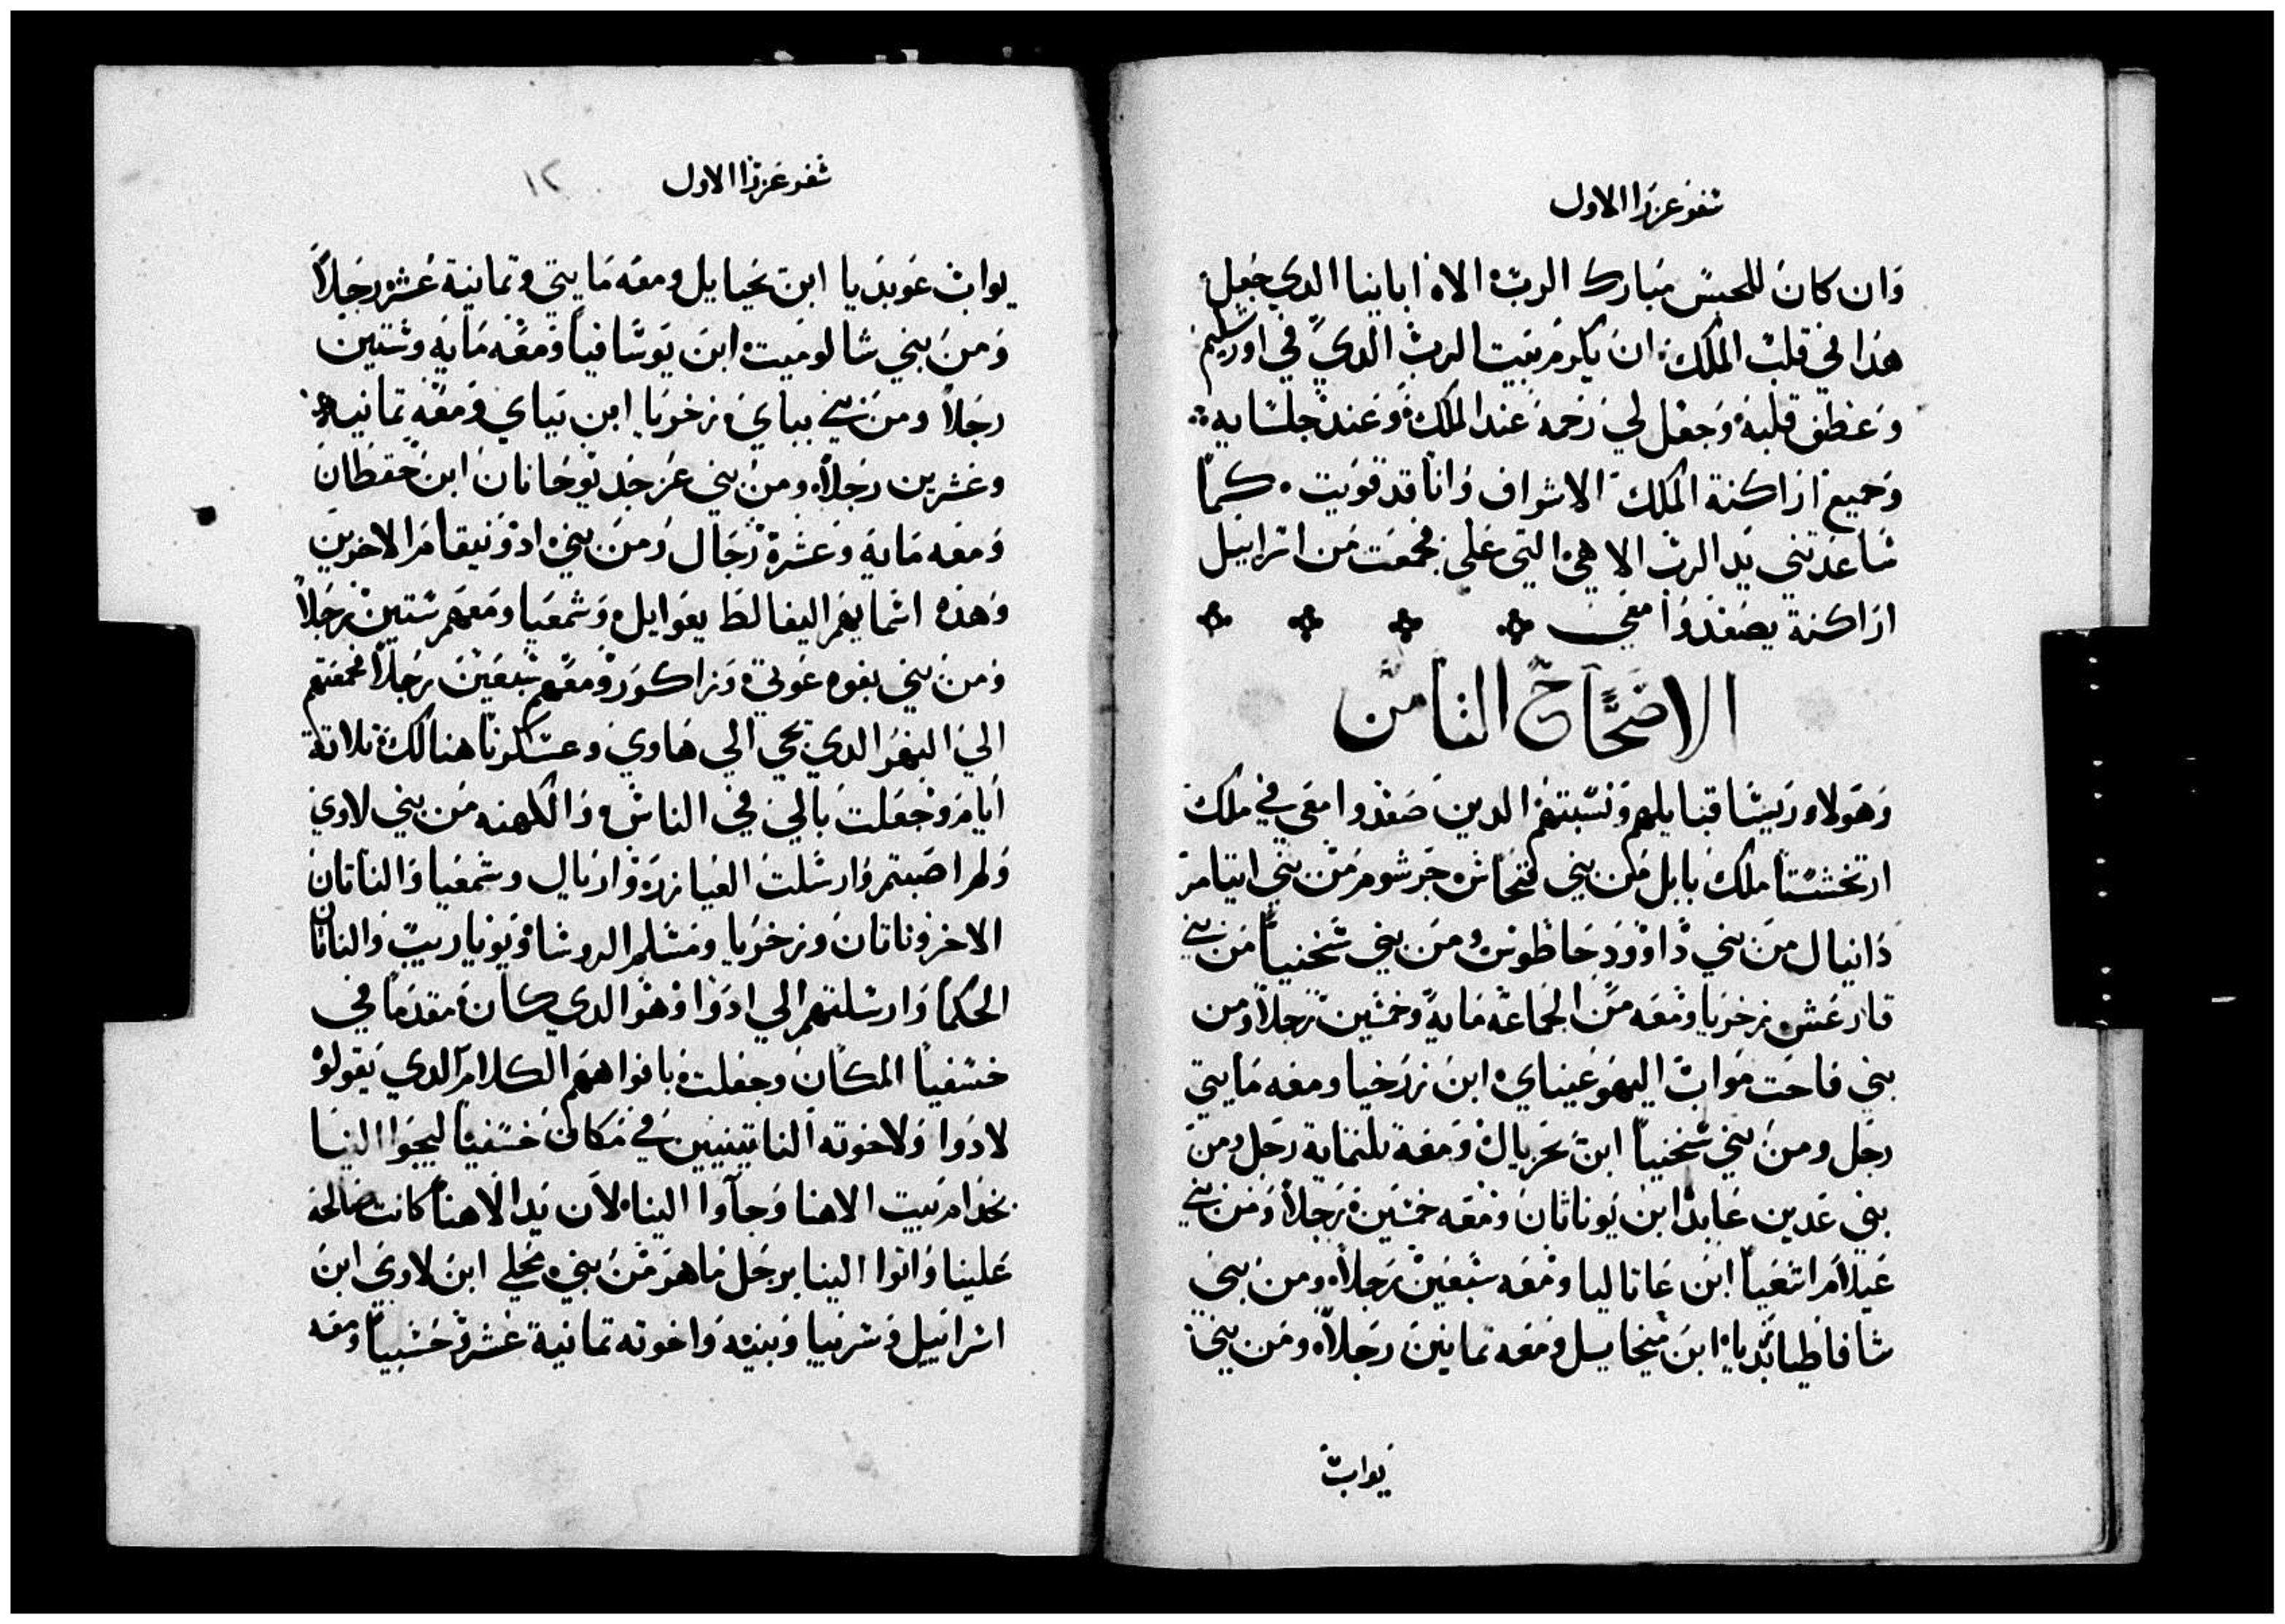 سفر عزرا الاول
وان كان للحبس مبارك الرب الاه اباينا الدي جعل
هدا في قلب الملك ان يكرم بيت الرب الدي في اورشليم
وعطف قلبه وجعل لي رحمة عند الملك وعند جلسايه
وجميع اراكنة الملك الاشراف وانا قد قويت كما
ساعدتني يد الرب الاهي التي علي فجمعت من اسراييل
اراكنة يصعدوا معي
الاصحاح الثامن
وهولاء ريسا قبايلهم ونسبتهم الدين صعدوا معي في ملك
ارتخشستا ملك بابل من بني فنحاس جرشوم من بني ايتامر
دانيال من بني داوود حاطوس ومن بني شخنيا من بني
فارعس زخريا ومعه من الجماعة ماية وخمسين رجلا ومن
بني فاحت مواب اليهوعيناي ابن زرخيا ومعه مايتي
رجل ومن بني شخنيا ابن نحزيال ومعه تلتماية رجل ومن
بني عدين عابد ابن يوناتان ومعه خمسين رجلا ومن بني
عيلام اشعيا ابن عاتاليا ومعه سبعين رجلا ومن بني
شافاطيا زبديا ابن ميخاييل ومعه تمانين رجلا ومن بني
يواب
سفر عزرا الاول ١٢
يواب عوبديا ابن يحيايل ومعه مايتي وتمانية عشر رجلا
ومن بني شالوميت ابن يوسافيا ومعه ماية وستين
رجلا ومن بني بباي زخريا ابن بباي ومعه تمانية
وعشرين رجلا ومن بني عزجد يوحانان ابن حقطان
ومعه ماية وعشرة رجال ومن بني ادونيقام الاخرين
وهده اسمايهم اليفالط يعوايل وشمعيا ومعهم ستين رجلا
ومن بني بغوه عوتي وزاكور ومعهم سبعين رجلا فجمعتهم
الي النهر الدي يجي الي هاوي وعسكرنا هنالك تلاتة
ايام وجعلت بالي في الناس والكهنه من بني لاوي
ولم اصبتم وارسلت اليعازره واريال وشمعيا والناتان
الاخر وناتان وزخريا ومشلم الروسا ويوياريب والناتان
الحكما وارسلتهم الي ادوا وهو الدي كان مقدما في
خسفيا المكان وجعلت بافواههم الكلام الدي يقولوه
لادوا ولاخوته الناتينيين في مكان خسفيا ليجوا الينا
بخدام بيت الاهنا وجاوا الينا لان يد الاهنا كانت صالحة
علينا واتوا الينا برجل ماهر من بني محلي ابن لاوي ابن
اسراييل وسربيا وبنيه واخوته تمانية عشر وحشبيا ومعه